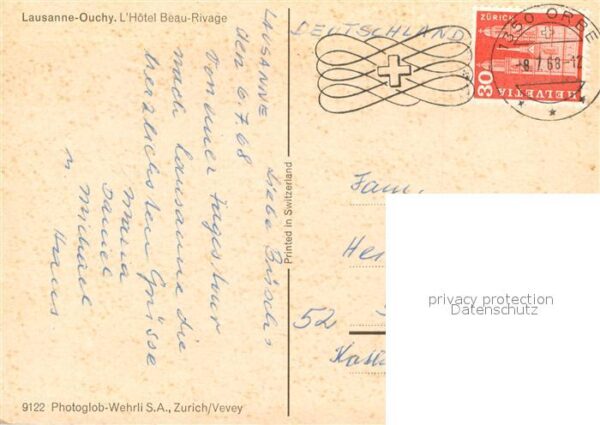 Lausanne-Ouchy. L'Hôtel Beau-Rivage
LAUSANNE
den 6.7.68
Liebe
Von einer Tagestour
nach Lausanne die
herzlichsten Grüsse
Maria
Daniel
Michael
Hans
Printed in Switzerland
9122 Photoglob-Wehrli S.A., Zurich/Vevey
DEUTSCHLAND
ZÜRICH
30
HELVETIA
1350 ORBE
-8.7.68-12
Fam.
52
privacy protection
Datenschutz